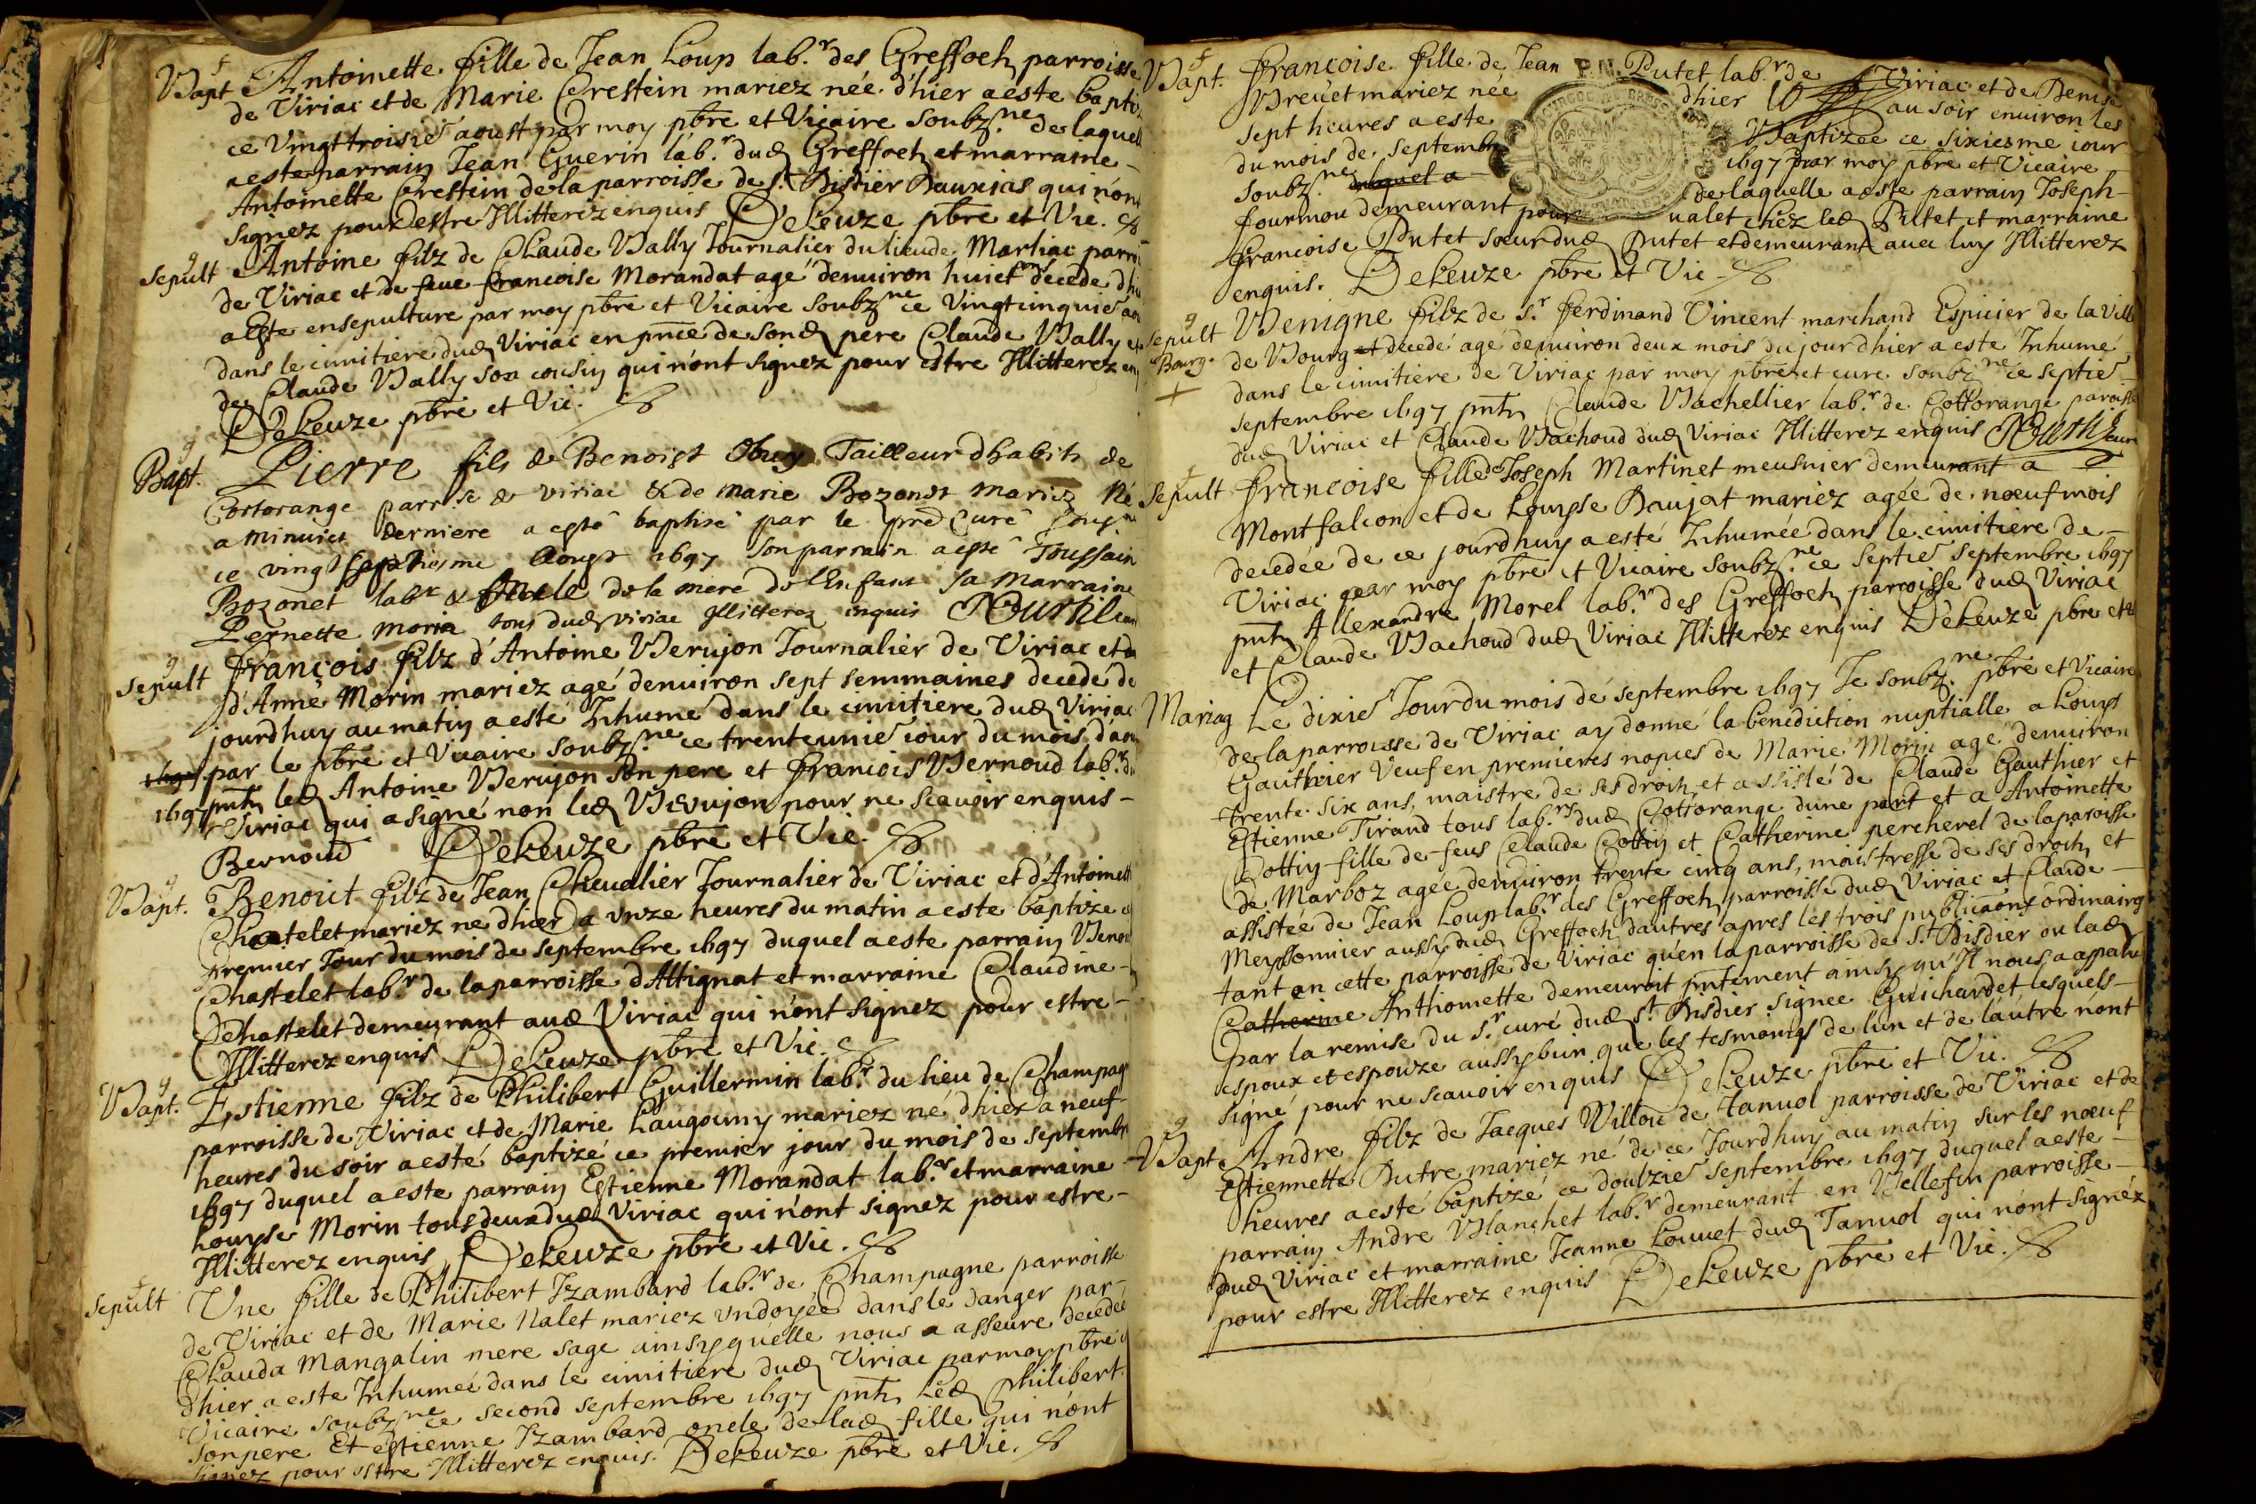 Bapt Antoinette fille de Jean Loup lab.r des Greffoch parroisse
de Viriac et de Marie Crestein mariez née d'hier a este bapti
ce vingt troisie aoust par moy pbre et Vicaire soubz.ne de laquell
a este parrain Jean Guerin lab.r dud Greffoch et marraine
Antoinette Crestein de la parroisse de s.t Disdier Dauxias qui n'ont
signez pour estre Illitterez enquis DeLeuze pbre et Vic.
Sepult Antoine filz de Claude Bally Journalier du lieu de Marliac parr
de Viriac et de feue francoise Morandat agé denuiron huict decede dhi
a este ensepulture par moy pbre et Vicaire soubz.ne ce Vingt cinquie ao
dans le cimitiere dud Viriac en pnce de sond pere Claude Bally et
de Claude Bally son cousin qui n'ont signez pour estre Illitterez en
DeLeuze pbre et Vic.
Bapt. Pierre fils de Benoist Obuy Tailleur dhabits de
Cottorange parroisse de viriac & de marie Bozonet mariez né
a minuict derniere a esté baptisé par le pred Curé soubz.ne
ce vingt septiesme Aoust 1697 son parrain a esté Toussain
Bozonet lab.r & oncle de la mere de l'Enfant sa marraine
Pernette moria tous dud viriac Illitterez enquis
Sepult François filz d'Antoine Verujon Journalier de Viriac et
d'Anne Morin mariez agé denuiron sept semmaines decede de
jourdhuy au matin a esté Inhumé dans le cimitiere dud Viriac
par le pbre et Vicaire soubz.ne ce trente unie iour du mois d'aou
1697 pnts led Antoine Verujon son pere et francois Bernoud lab.r d
Viriac qui a signé non led Verujon pour ne scauoir enquis
Bernoud DeLeuze pbre et Vic.
Bapt. Benoict filz de Jean Cheualier Journalier de Viriac et d'Antoinett
Chatelet mariez ne dhier a unze heures du matin a este baptize c
premier Jour du mois de septembre 1697 duquel a este parrain Benoi
Chastelet lab.r de la parroisse dAttignat et marraine Claudine
Chastelet demeurant aud Viriac qui n'ont signez pour estre
Illitterez enquis DeLeuze pbre et Vic.
Bapt. Estienne filz de Philibert Guillermin lab.r du lieu de Champag
parroisse de Viriac et de Marie Laugouny mariez né dhier a neuf
heures du soir a esté baptizé ce premier jour du mois de septembr
1697 duquel a este parrain Estienne Morandat lab.r et marraine
Louyse Morin tous deux dud Viriac qui n'ont signez pour estre
Illitterez enquis DeLeuze pbre et Vic.
Sepult Une fille de Philibert Izambard lab.r de Champagne parroisse
de Viriac et de Marie Nalet mariez undoyée dans le danger par
Clauda Mangalin mere sage ainsy quelle nous a asseure decedée
dhier a este Inhumée dans le cimitiere dud Viriac par moy pbre
Vicaire soubz.ne ce second septembre 1697 pnts led Philibert
son pere Et estienne Izambard oncle de lad fille qui n'ont
signez pour estre Illitterez enquis. DeLeuze pbre et Vic.
Bapt. françoise fille de Jean Putet lab.r de Viriac et de Denise
Breuet mariez née dhier au soir enuiron les
sept heures a este Baptizée ce sixiesme iour
du mois de septembre 1697 par moy pbre et Vicaire
soubz.ne duquel a de laquelle a este parrain Joseph
fourmou demeurant pour ualet chez led Putet et marraine
francoise Putet soeur dud Putet et demeurant auec luy Illitterez
enquis. DeLeuze pbre et Vic
Sepult Bourg. Benigne filz de s.r ferdinand Vincent marchand Espicier de la Ville
de Bourg et decedé agé denuiron deux mois du jourdhier a esté Inhumé
dans le cimitiere de Viriac par moy pbre et curé soubz.ne ce septie
septembre 1697 pnts Claude Bachellier lab.r de Cottorange paroisse
dud Viriac et Claude Bachoud dud Viriac Illitterez enquis
Sepult françoise fille de Joseph Martinet meusnier demeurant a
Montfalcon et de Louyse Baujat mariez agée de noeuf mois
decedée de ce jourdhuy a esté Inhumée dans le cimitiere de
Viriac par moy pbre et Vicaire soubz.ne ce septie septembre 1697
pnts Allexandre Morel lab.r des Greffoch parroisse dud Viriac
et Claude Bachoud dud Viriac Illitterez enquis DeLeuze pbre et V
Mariag Le dixie Jour du mois de septembre 1697 Je soubz.ne pbre et Vicaire
de la parroisse de Viriac ay donné la benediction nuptialle a Louys
Gauthier Veuf en premieres nopces de Marie Morin agé denuiron
trente six ans, maistre de ses droich, et assisté de Claude Gauthier et
Estienne Tirand tous lab.rs dud Cottorange dune part et a Antoinette
Cottin fille de feus Claude Cottin et Catherine percherel de la paroisse
de Marboz agée denuiron trente cinq ans, maistresse de ses droich, et
assistée de Jean Loup lab.r des Greffoch parroisse dud Viriac et Claude
Meyssonnier aussy dud Greffoch dautres apres les trois publicaons ordinaires
tant en cette parroisse de Viriac qu'en la parroisse de s.t Disdier ou lad
Catherine Anthoinette demeuroit pntement ainsy qu'Il nous a apparu
par la remise du s.r curé dud s.t Disdier signee Guichardet lesquels
espoux et espouze aussy bien que les tesmoings de lun et de l'autre n'ont
signé pour ne scauoir enquis DeLeuze pbre et Vic.
Bapt Andre filz de Jacques Villou de Tanuol parroisse de Viriac et de
Estiennette Dutre mariez né de ce Jourdhuy au matin sur les noeuf
heures a esté baptizé ce doulzie septembre 1697 duquel a este
parrain Andre Blanchet lab.r demeurant en Vellefin parroisse
dud Viriac et marraine Jeanne Louuet dud Tanuol qui n'ont signéz
pour estre Illitterez enquis DeLeuze pbre et Vic.